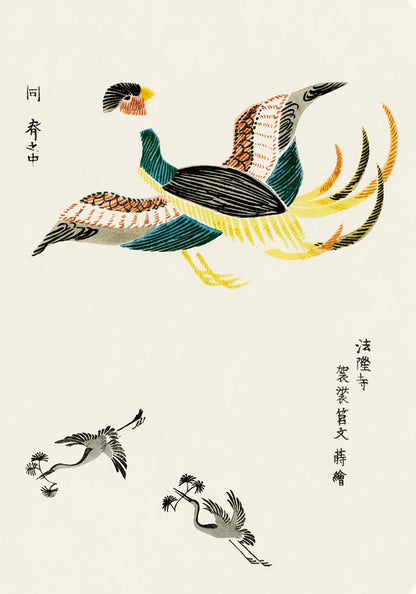 法隆寺
袈裟筥文 蒔繪
同 袋之中